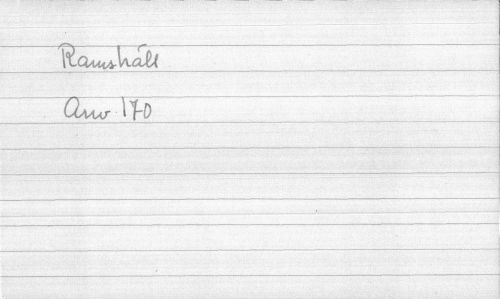 Ramshäll
Arw 170